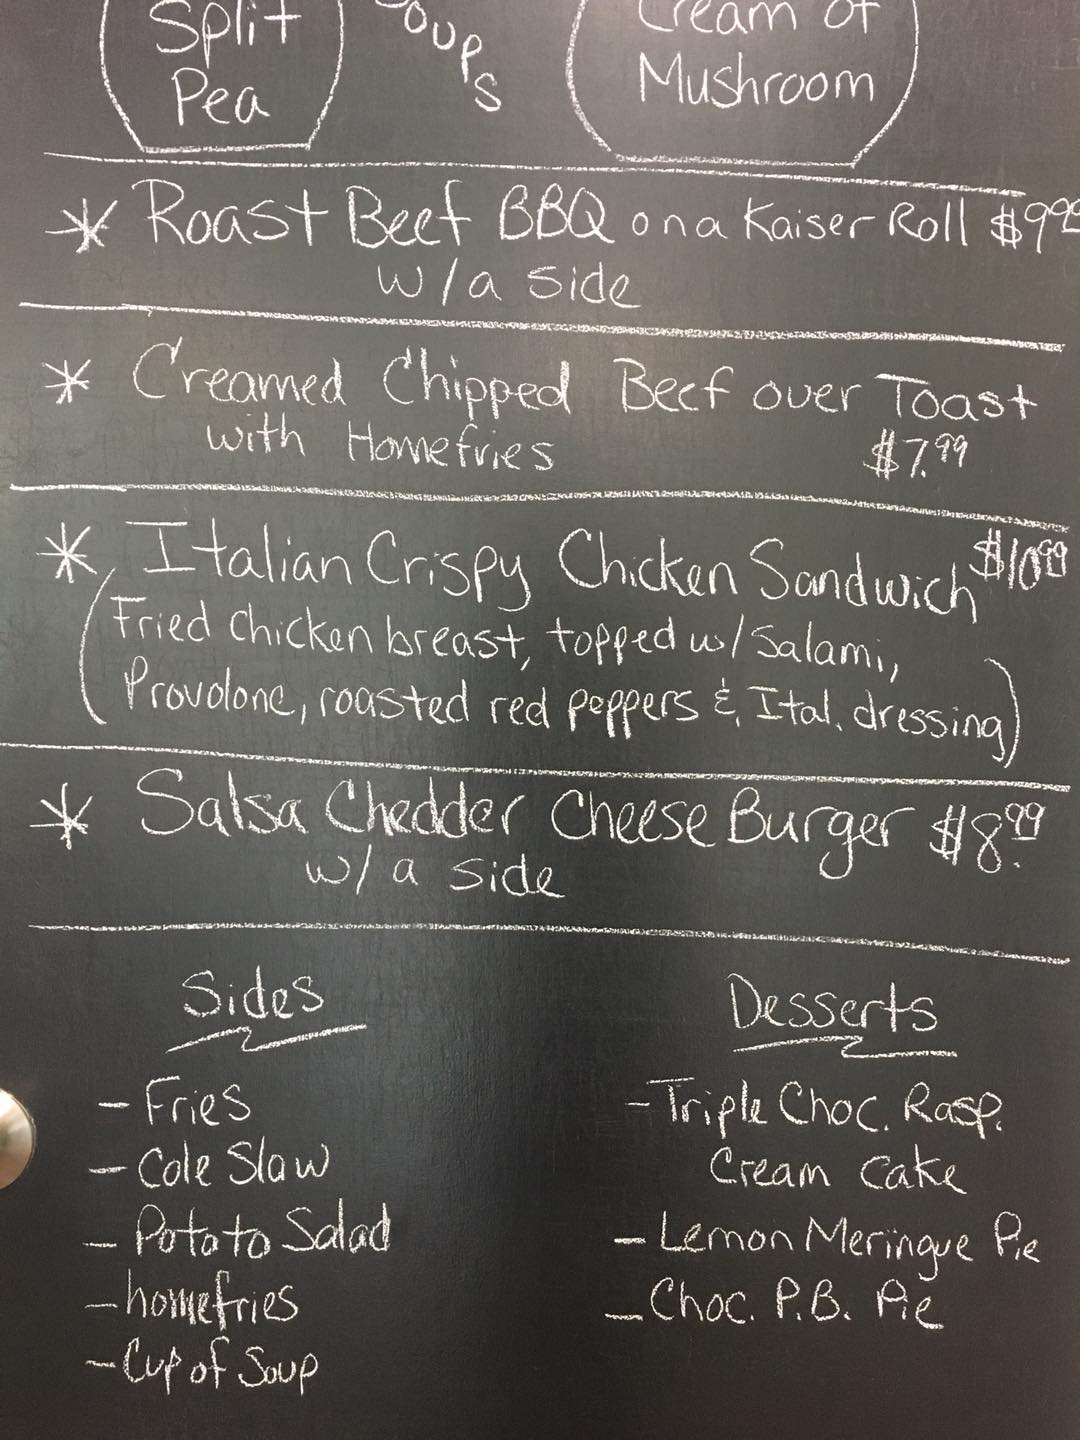 Split
Pea
Soups
Cream of
Mushroom
* Roast Beef BBQ on a Kaiser Roll $9.99
w/a side
* Creamed Chipped Beef over Toast
with Homefries $7.99
* Italian Crispy Chicken Sandwich $10.99
(Fried chicken breast, topped w/ Salami,
Provolone, roasted red peppers & Ital. dressing)
* Salsa Chedder Cheese Burger $8.99
w/ a side
Sides
- Fries
- Cole Slaw
- Potato Salad
- homefries
- Cup of Soup
Desserts
- Triple Choc. Rasp.
Cream Cake
- Lemon Meringue Pie
- Choc. P.B. Pie